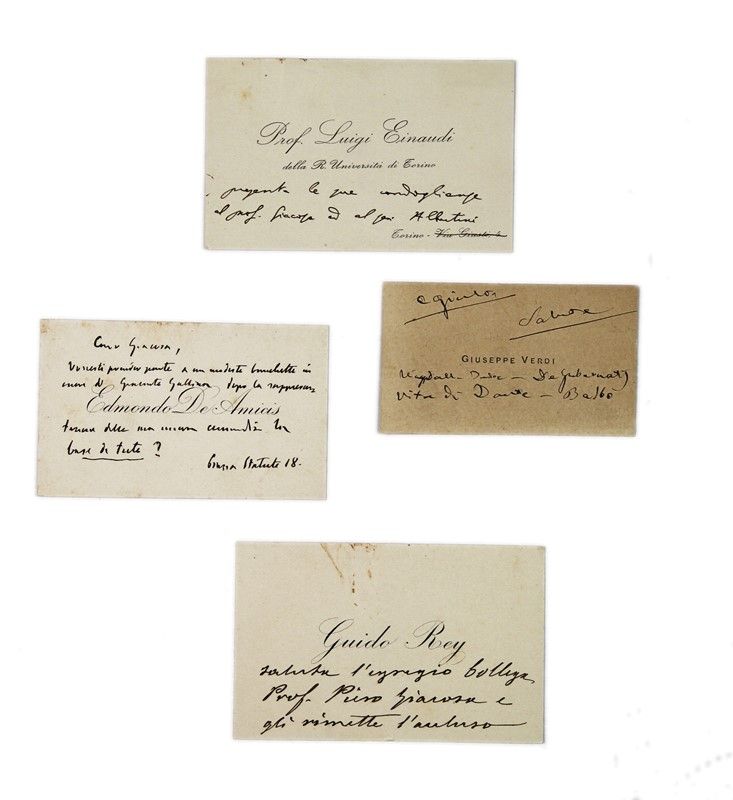 Prof. Luigi Einaudi
della R. Università di Torino
presenta le sue condoglianze
al prof. Giacosa ed al sen Albertini
Torino - Via Giusti, 4
Salute
GIUSEPPE VERDI
Dante - De Gubernatis
Vita di Dante - Balbo
Caro Giacosa,
Vorresti prender parte a un modesto banchetto in
onore di Giacinto Gallina dopo la rappresen
Edmondo De Amicis
tazione della sua nuova commedia La
base de tuto ?
Piazza Statuto 18.
Guido Rey
saluta l'egregio Collega
Prof. Piero Giacosa e
gli rimette l'accluso